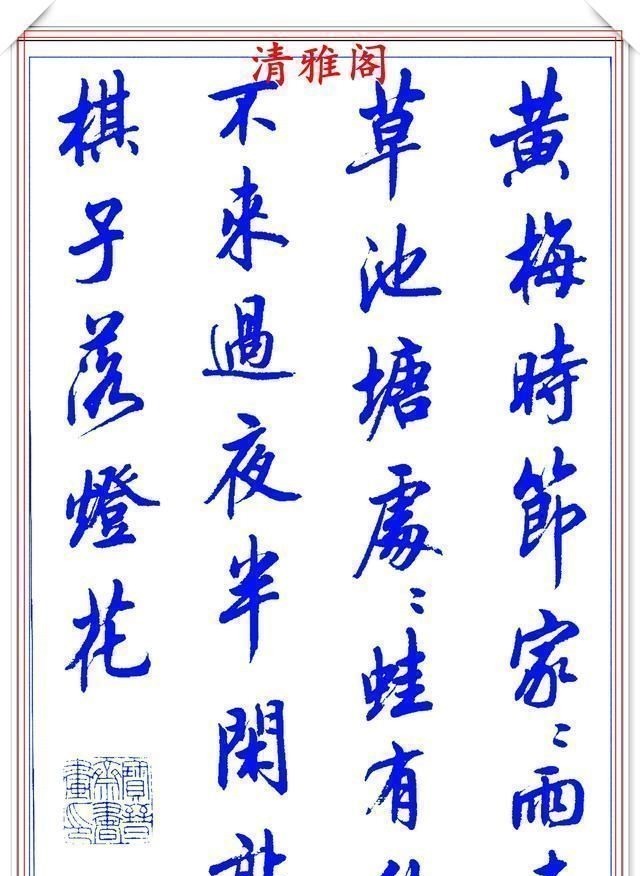 清雅阁
黄梅時節家〻雨
草池塘處〻蛙有
不來過夜半閑
棋子落燈花